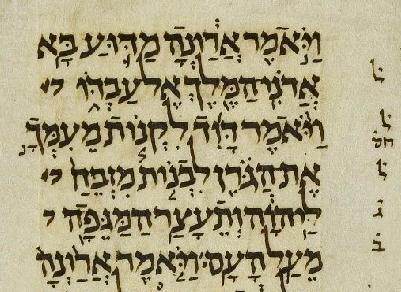 וַיֹּאמֶר אֲרַוְנָה מַדּוּעַ בָּא
ל
אֲדֹנִי הַמֶּלֶךְ אֶל עַבְדּוֹ
וַיֹּאמֶר דָּוִד לִקְנוֹת מֵעִמְּךָ
ל
חס
אֶת הַגֹּרֶן לִבְנוֹת מִזְבֵּחַ
ל
לַיהוָה וְתֵעָצַר הַמַּגֵּפָה
ג
מֵעַל הָעָם׃ וַיֹּאמֶר אֲרַוְנָה
ב